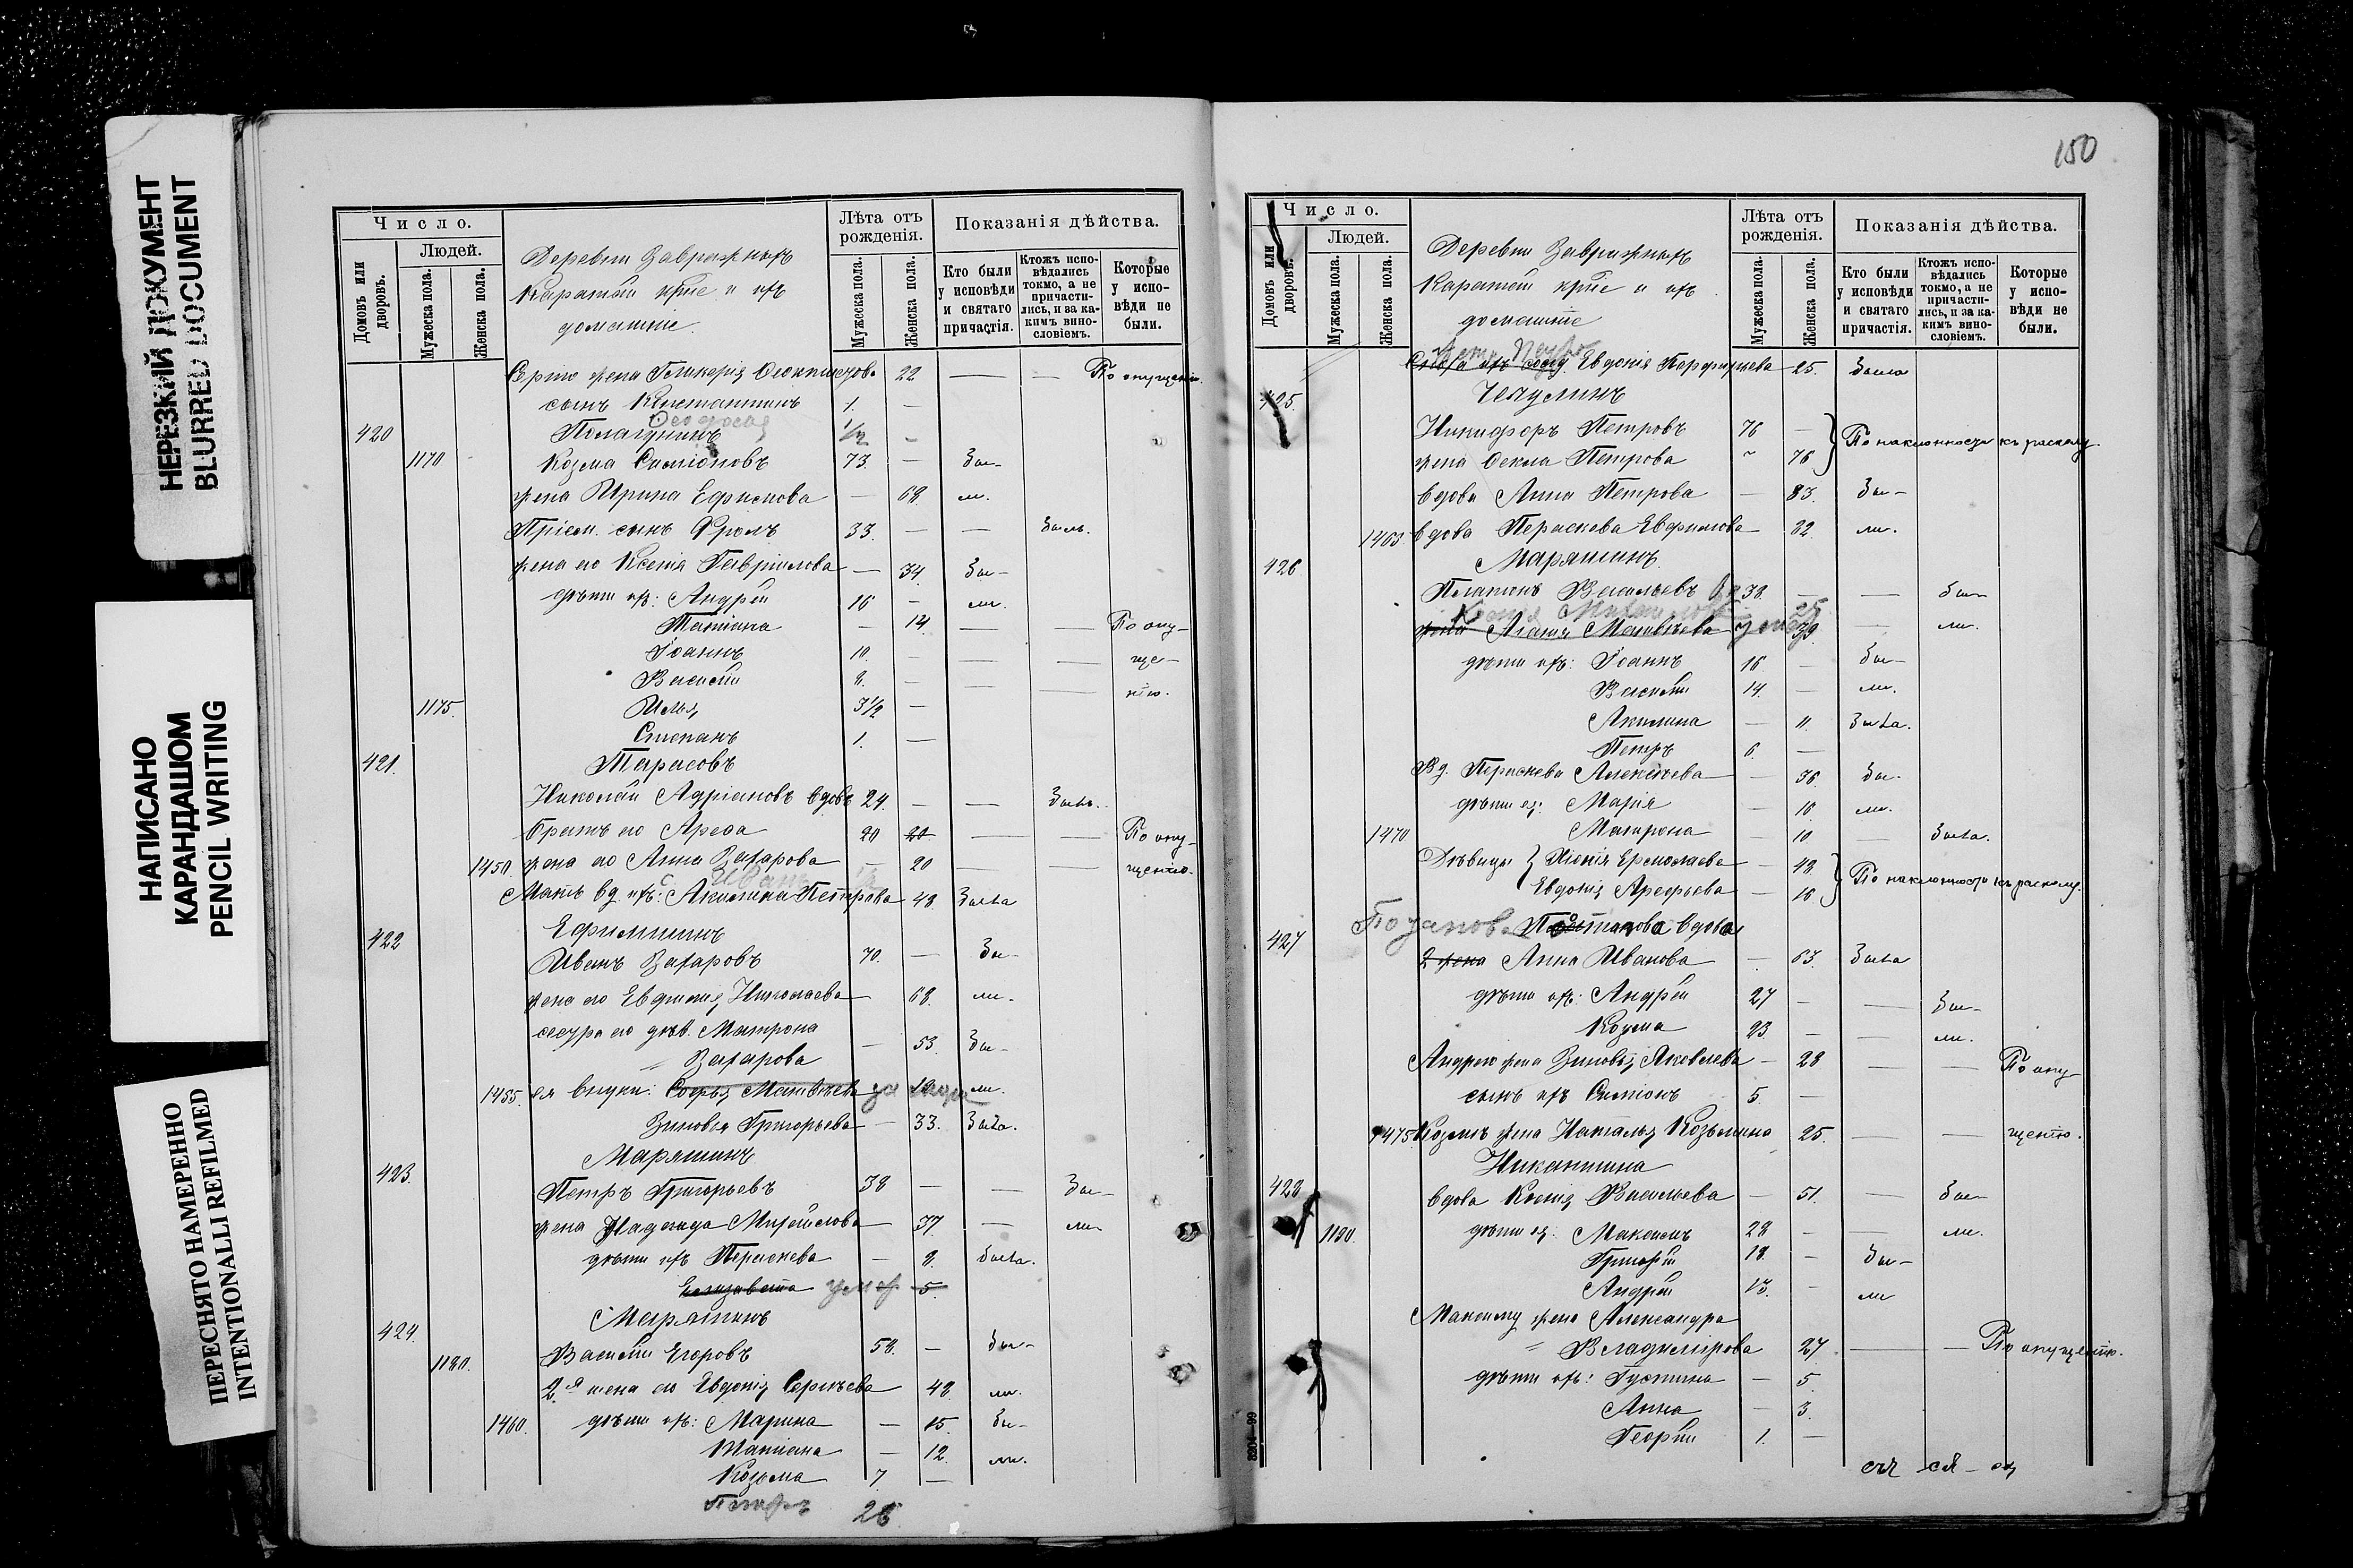 НЕРЕЗКИЙ ДОКУМЕНТ
BLURRED DOCUMENT
НАПИСАНО
КАРАНДАШОМ
PENCIL WRITING
ПЕРЕСНЯТО НАМЕРЕННО
INTENTIONALLI REFILMED
Число.
Людей.
Домовъ или дворовъ.
Мужеска пола.
Женска пола.
Деревни Завражныхъ
Каратай кр̃не и ихъ
домашніе
Лѣта отъ рожденія.
Мужеска пола.
Женска пола.
Показанія дѣйства.
Кто были у исповѣди и святаго причастія.
Ктожъ исповѣдались токмо, а не причастились, и за какимъ винословіемъ.
Которые у исповѣди не были.
жена Гликерія 22 — — По опущенію.
сынъ Константинъ 1. —
420
1170 Козма Симіоновъ 73. — Бы-
жена Ирина Ефимова — 68. ли.
Пріем. сынъ Фролъ 33. — — Былъ.
жена его Ксенія Гавріилова — 34. Бы-
дѣти ихъ: Андрей 16 — ли.
Татіана — 14 — — По опу-
Іоаннъ 10. — — — ще-
Василій 8. — — — нію.
1175. Илья 3½ —
Степанъ 1. —
421. Тарасовъ
Николай Адріановъ вдовъ 24. — — Былъ.
братъ его Арефа 20 20 — — По опу-
1450. жена его Анна Захарова — 20 — — щенію.
Мать вд. ихъ: Акилина Петрова 48 Была
422 Ефимишинъ
Иванъ Захаровъ 70. — Бы-
жена его Евфимія Николаева — 68. ли.
сестра его дѣв. Матрона
Захарова — 53. Бы-
1455. ея внуки: Софья Матвѣева ли.
Зиновья Григорьева — 33. Была.
423. Маряшинъ
Петръ Григорьевъ 38 — — Бы-
жена Надежда Михайлова — 37. — ли
дѣти ихъ Параскева — 8. Была.
Елизавета умер 5.
424. Маряшинъ
1180. Василій Егоровъ 58. — Бы-
2.я жена его Евдокія Сергѣева 48. ли.
1460. дѣти ихъ: Марина — 15. Бы-
Татіана — 12. ли.
Козьма 7. —
Петръ 26
150
Число.
Людей.
Домовъ или дворовъ.
Мужеска пола.
Женска пола.
Деревни Завражныхъ
Каратай кр̃не и ихъ
домашніе
Лѣта отъ рожденія.
Мужеска пола.
Женска пола.
Показанія дѣйства.
Кто были у исповѣди и святаго причастія.
Ктожъ исповѣдались токмо, а не причастились, и за какимъ винословіемъ.
Которые у исповѣди не были.
Евдокія Порфирьева — 25. Была
425. Чепулинъ
Никифоръ Петровъ 76 —
По наклонности къ расколу.
жена Фекла Петрова — 76
вдова Анна Петрова — 83. Бы-
1465 вдова Параскева Евфимова — 32. ли.
426 Маряшинъ
Платонъ Васильевъ 38. — — Бы-
жена Агаѳія Матвѣева 39. — ли.
дѣти ихъ: Іоаннъ 16 — Бы-
Василій 14. — ли.
Акилина — 11. Была.
Петръ 6. —
Вд. Параскева Алексѣева — 36. Бы-
дѣти ея: Марія — 16. ли.
1470 Матрона — 10 — Была.
Дѣвицы Хіонія Ермолаева — 48.
По наклонности къ расколу.
Евдокія Арефьева — 16
427 вдова
2 жена Анна Иванова — 63. Была
дѣти ихъ: Андрей 27 — — Бы-
Козма 23. — — ли.
Андрею жена Зиновья Яковлева — 28 — — По опу-
сынъ ихъ Симіонъ 5. —
1475. Козмѣ жена Наталья Козьмина 25. — — щенію.
428 Никаншина
вдова Ксенія Васильева — 51. — Бы-
1180. дѣти ея: Максимъ 28 — — ли.
Григорій 18. — Бы-
Андрей 13. — ли
Максиму жена Александра
Владимірова 27 — — По опущенію.
дѣти ихъ: Густина — 5.
Анна — 3.
Георгій 1. —
8204—99